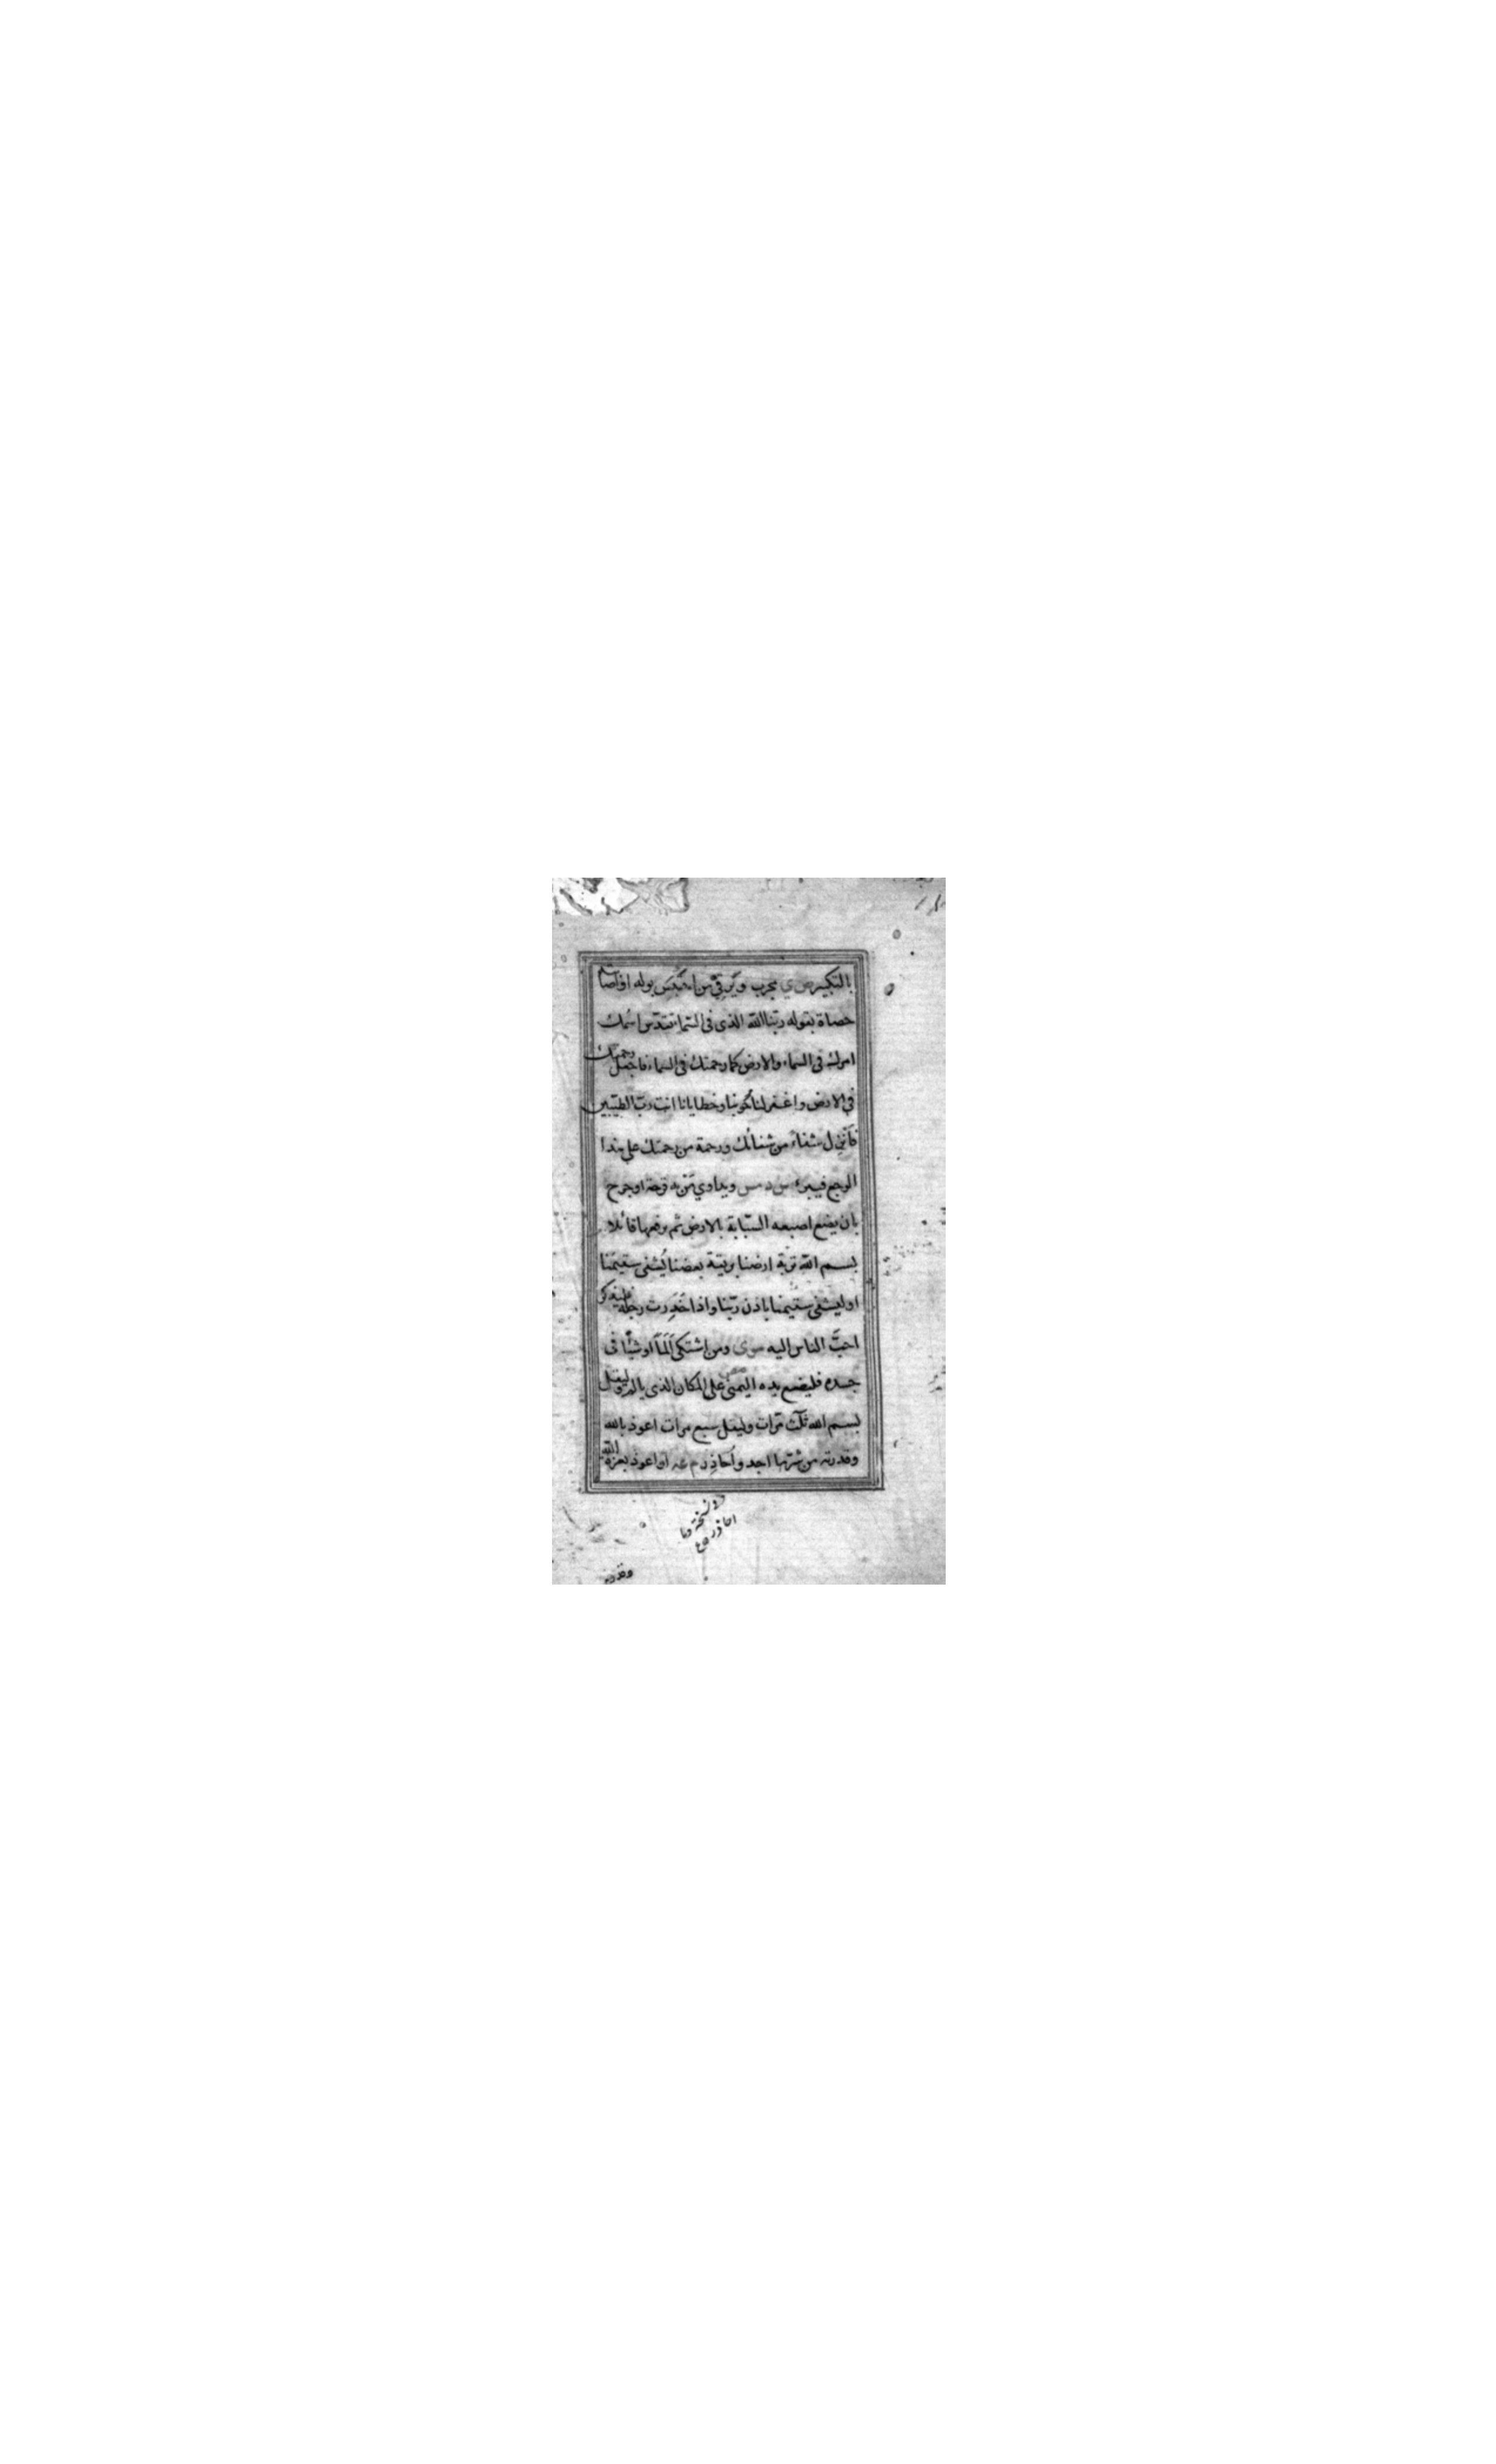 بالتكبير ص ي مجرب ويَرقِي من احتبس بوله او اصابته
حصاة بقوله ربنا الله الذى فى السماء تقدس اسمك
امرك فى السماء والارض كما رحمتك فى السماء فاجعل رحمتك
في الارض واغفر لنا حوبنا وخطايانا انت رب الطيبين
فَاَنْزِل شفاءً من شفائك ورحمة من رحمتك على هذا
الوجع فيبرء س د مس ويداوي من به قرحة او جرح
بان يضع اصبعه السبّابة بالارض ثم يرفعها قائلا
بسم الله تربة ارضنا بريقة بعضنا يُشفى سقيمنا
او ليشفى سقيمنا باذن ربّنا واذا خَدِرت رجله فليذكر
احبَّ الناس اليه موى ومن اشتكى اَلَمًا او شيئًا فى
جسده فليضع يده اليمنى على المكان الذى يالم وليقل
بسم الله ثلث مرّات وليقل سبع مرات اعوذ بالله
وقدرته من شرّ ما اجد واُحاذِر م عه او اعوذ بعزة الله
نسخة وما
احاذر
وقدرته